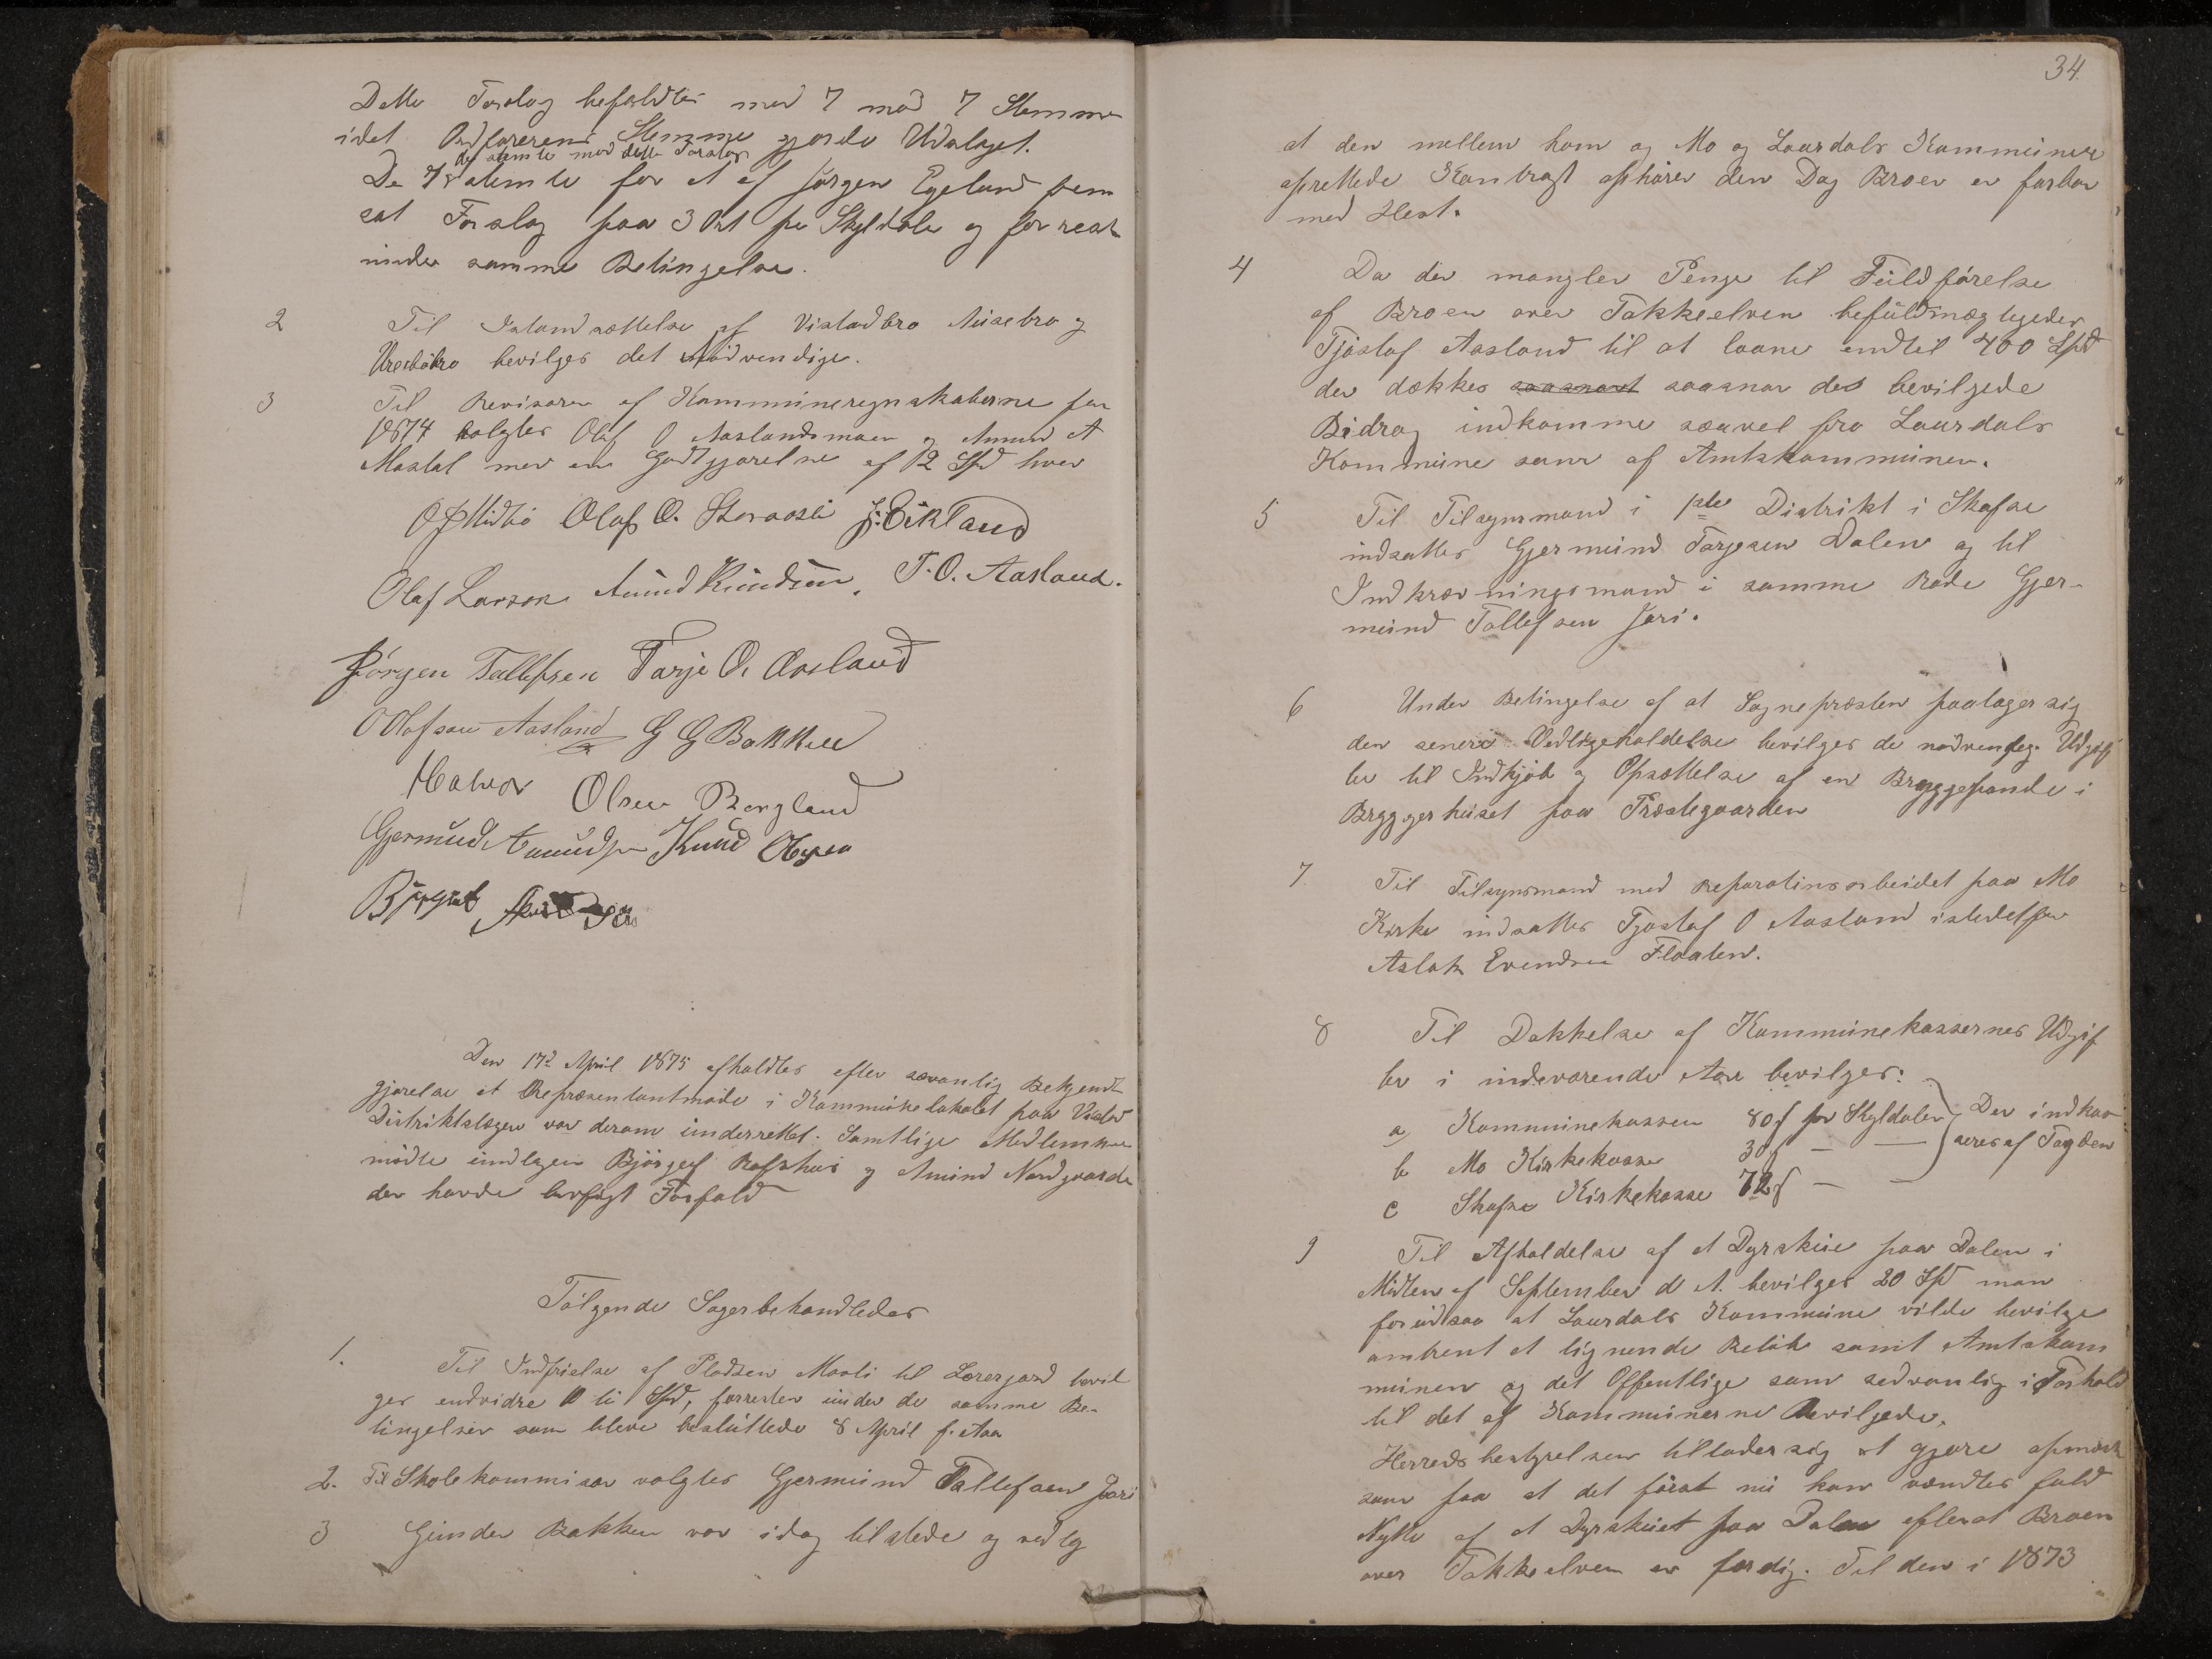 Dette Forslag befaldtes med 7 mod 7 Stemmer
idet Ordførerens Stemme gjorde Udslaget.
de stemte mod dette Forslag
De 7 stemte for et af Jørgen Egeland frem
sat Forslag paa 3 Ort pr Skyldaler og forrest
under samme Betingelser.
2 Til Istandsættelse af Vistadbro Nusebro og
bevilges det nødvendige.
3 Til Revisorer af Kommuneregnskaberne for
1874 valgtes Olaf O Aaslandsmoen og Amund A
Mostøl mod en Godtgjørelse af 12 Spd hver
O J Midbø Olaf O. Storaasli J. Eikland
Olaf Larson Amund Knudsen, T. O. Aasland.
Jørgen Tallefsen Tarje O. Aasland
O Olafsen Aasland G G Bakken
Halvor Olsen Bergland
Gjermund Amundsen Knud Olsen
Bjørgulf
Den 17de April 1875 afholdtes efter sædvanlig Bekjendt
gjørelse et Repræsentantmøde i Kommunelokalet paa
Distriktslægen var derom underrettet. Samtlige Medlemmer
mødte undtagen Bjørgulf Rafshus og Amund Nordgaarde
der havde lovligt Forfald
Følgende Sager behandledes
1. Til Indfrielse af Pladsen Mosli til Lærerjord bevil
ges endvidre 10 ti Spd, forresten under de samme Be-
tingelser som bleve besluttede 8 April f. Aar
2. Til Skolekommisær valgtes Gjermund Tallefsen Jori
3 Gunder Bakken var idag tilstede og vedtog
34.
at den mellem ham og Mo og Laurdals Kommuner
oprettede Kontragt ophører den Dag Broen er farbar
med Hest.
4 Da der mangler Penge til Fuldførelse
af Broen over Tokkeelven befuldmægtigedes
Tjøstaf Aasland til at laane indtil 400 Spd
der dækkes saasnart saasnar det bevilgede
Bidrag indkomme saavel fra Laurdals
Kommune som af Amtskommunen.
5 Til Tilsynsmand i 1ste Distrikt i Skafse
indsattes Gjermund Tarjesen Dalen og til
Indkrævningsmand i samme Rode Gjer-
mund Tallefsen Jori.
6 Under Betingelse af at Sognepræsten paatager sig
den senere Vedligeholdelse bevilges de nødvendig. Udgif
ter til Indkjøb og Opsættelse af en Bryggepande i
Bryggerhuset paa Præstegaarden
7. Til Tilsynsmand med Reparationsarbeidet paa Mo
Kirke indsattes Tjøstaf O Aasland istedetfor
Aslak Evendsen Flaaten.
8 Til Dækkelse af Kommunekassernes Udgif
ter i indeværende Aar bevilges:
a, Kommunekassen 80 s pr Skyldaler } Der indkas
b Mo Kirkekasse 30 s — — } seres af Fogden
c Skafse Kirkekasse 72 s — —
9 Til Afholdelse af et Dyrskue paa Dalen i
Midten af September d. A. bevilges 20 Spd man
forudsaa at Laurdals Kommune vilde bevilge
omtrent et lignende Beløb samt Amtskom
munen og det Offentlige som sedvanlig i Forhold
til det af Kommunerne Bevilgede.
Herredsbestyrelsen tillader sig at gjøre opmærk
som paa at det først nu kan ventes fuld
Nytte af et Dyrskuet paa Dalen efterat Broen
over Tokkeelven er færdig. Til den i 1873